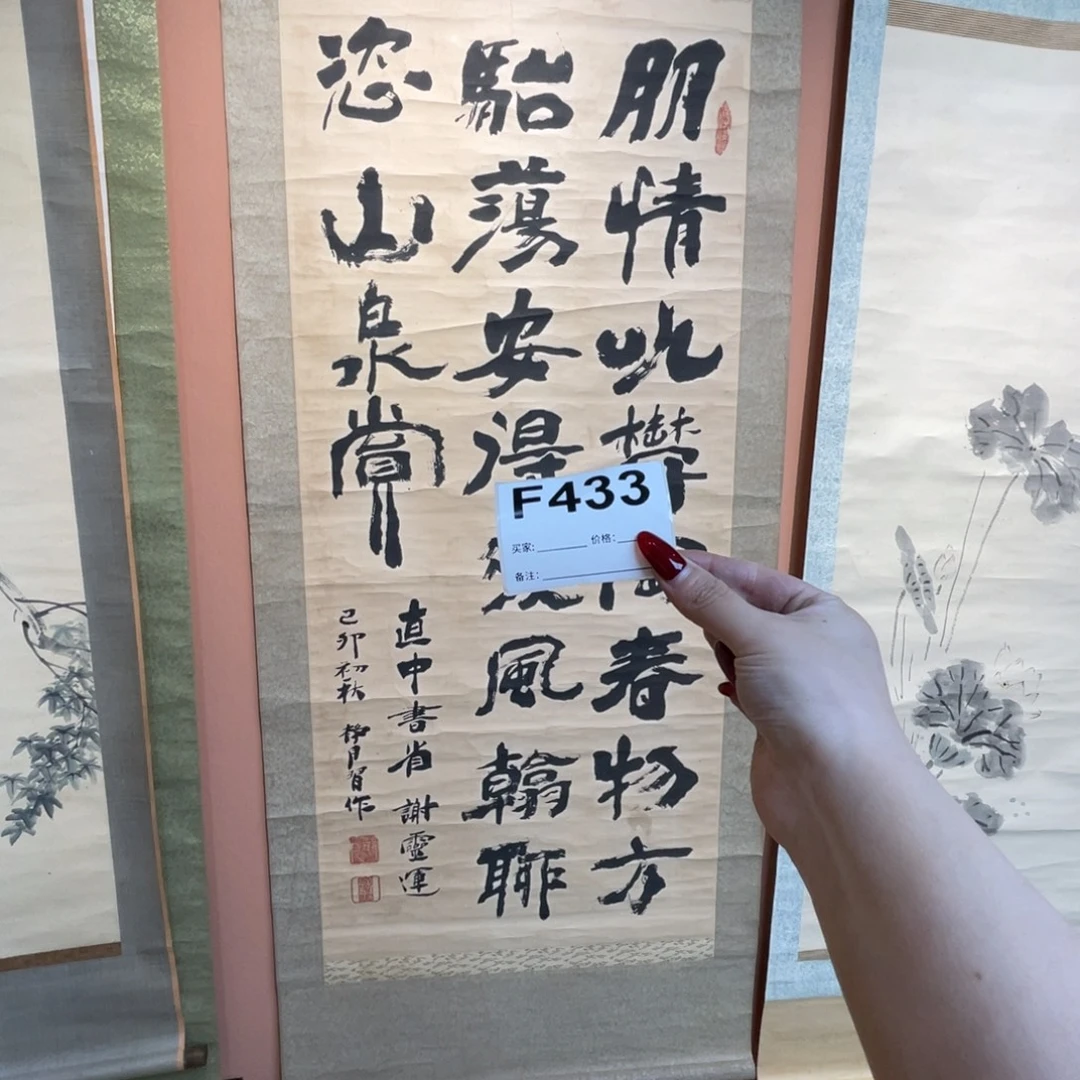 朋情以欝春物方
駘蕩安得風翰聊
恣山泉賞
直中書省 謝靈運
己卯初秋 静月習作
F433
买家: 价格:
备注: